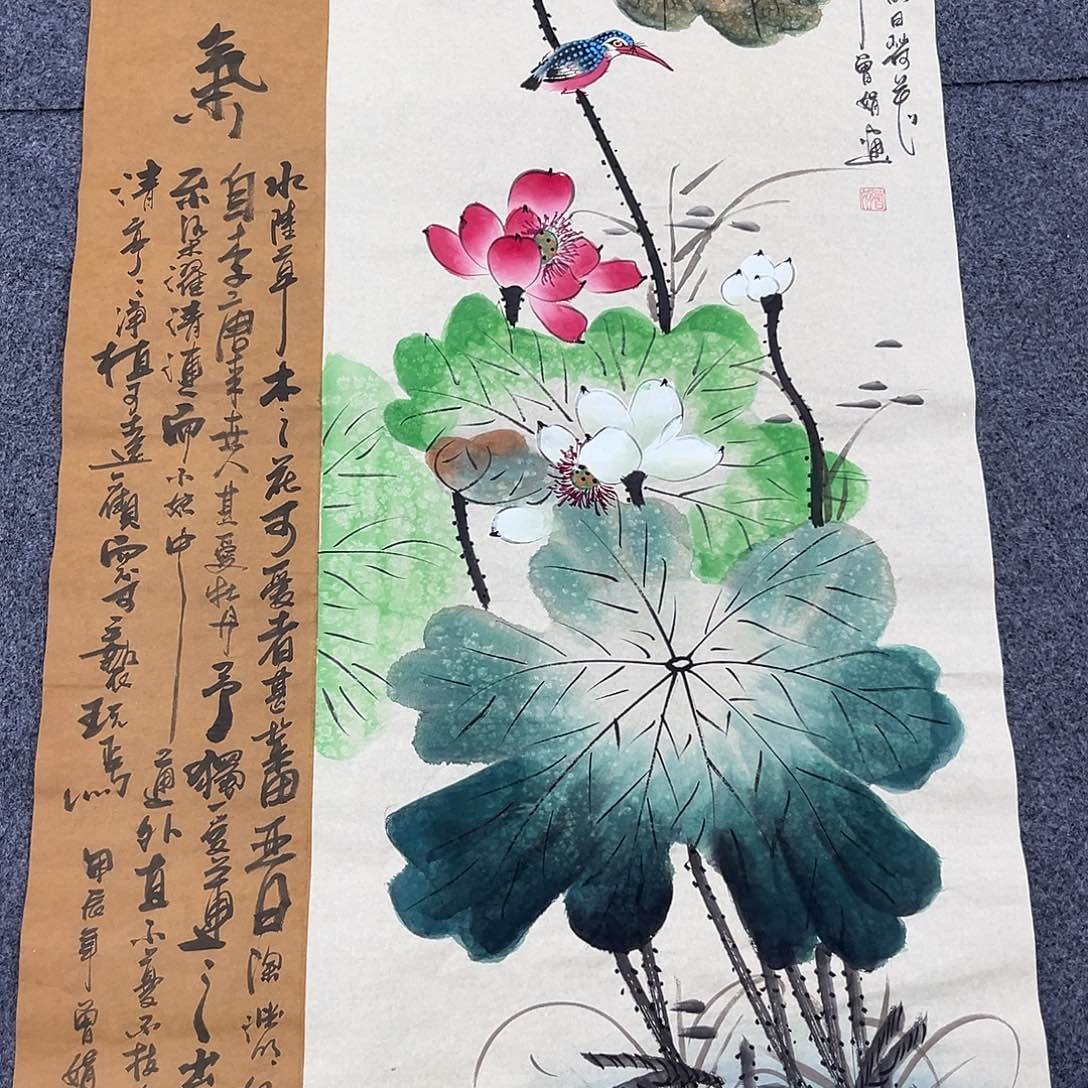 氣
水陸草木之花可爱者甚蕃晉陶渊明
自李唐来世人甚爱牡丹予獨爱蓮之出
不染濯清漣而不妖中通外直不蔓不枝
清亭亭净植可遠觀而不可褻玩焉
甲辰年曾娟
日荷花
曾娟画